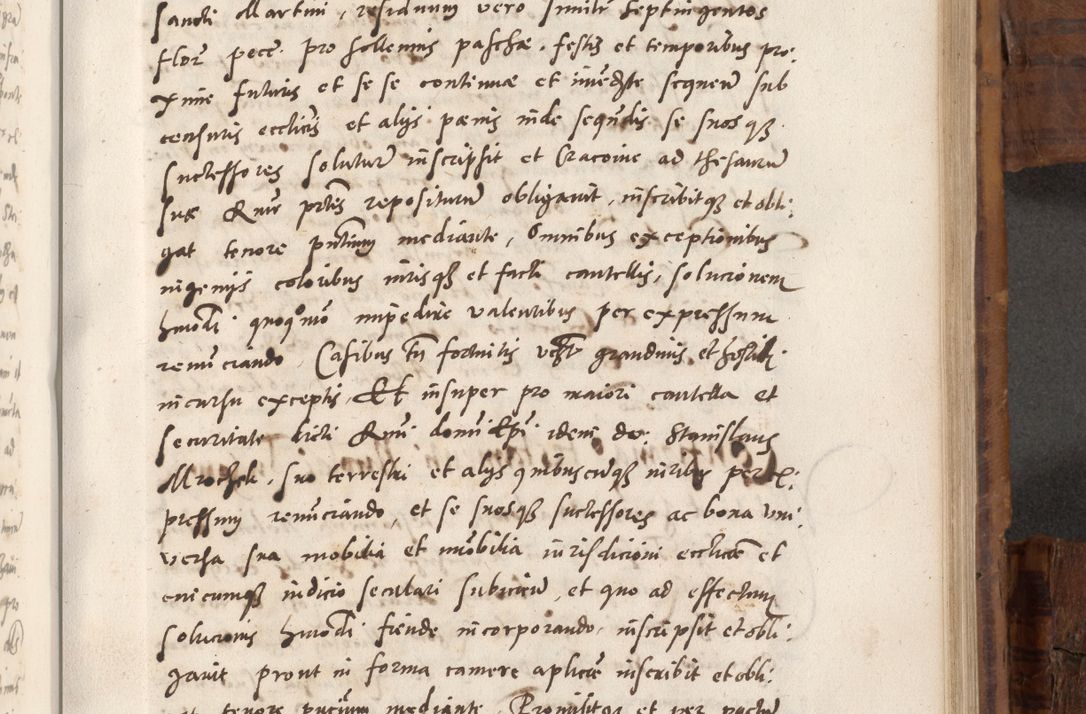 Sancti Martini, residuum vero similr septingentos
flor pecc. pro sollemnis paschae. festis et temporibus pro:
xime futuris et se se continuae et immediate sequeñ sub
censuris ecclicis et alijs pœnis inde sequendis se suos qz
successores soluturũ inscripsit et Cracoviæ ad thesaurũ
suæ Rmæ prtis repositurũ obligavit, inscribitqz et obli:
gat tenore pñtium mediante, Omnibus exceptionibus
ingenijs coloribus iurisqz et facti cautellis, solucionem
hmodi quoquomo impedire valentibus per expressum
renunciando, Casibus tñ fortuitis grandinis et hostili
incursu exceptis, Et insuper pro maiori cautella et
securitate dicti Rmi domini Epi idem do: Stanislaus
Mrochek, suo terrestri et alijs quibuscunqz iuribus per ex:
pressum renunciando, et se suosqz successores ac bona uni:
versa sua mobilia et imobilia iurisdicioni ecclicæ et
cuicumqz iudicio seculari subiciẽ, et quo ad effectum
solucionis hmodi fiende incorporando, inscripsit et obli:
gavit prout in forma camere aplicæ inscribit et obli:
gat tenore pñcium mediante, Promisitqz et per pactũ